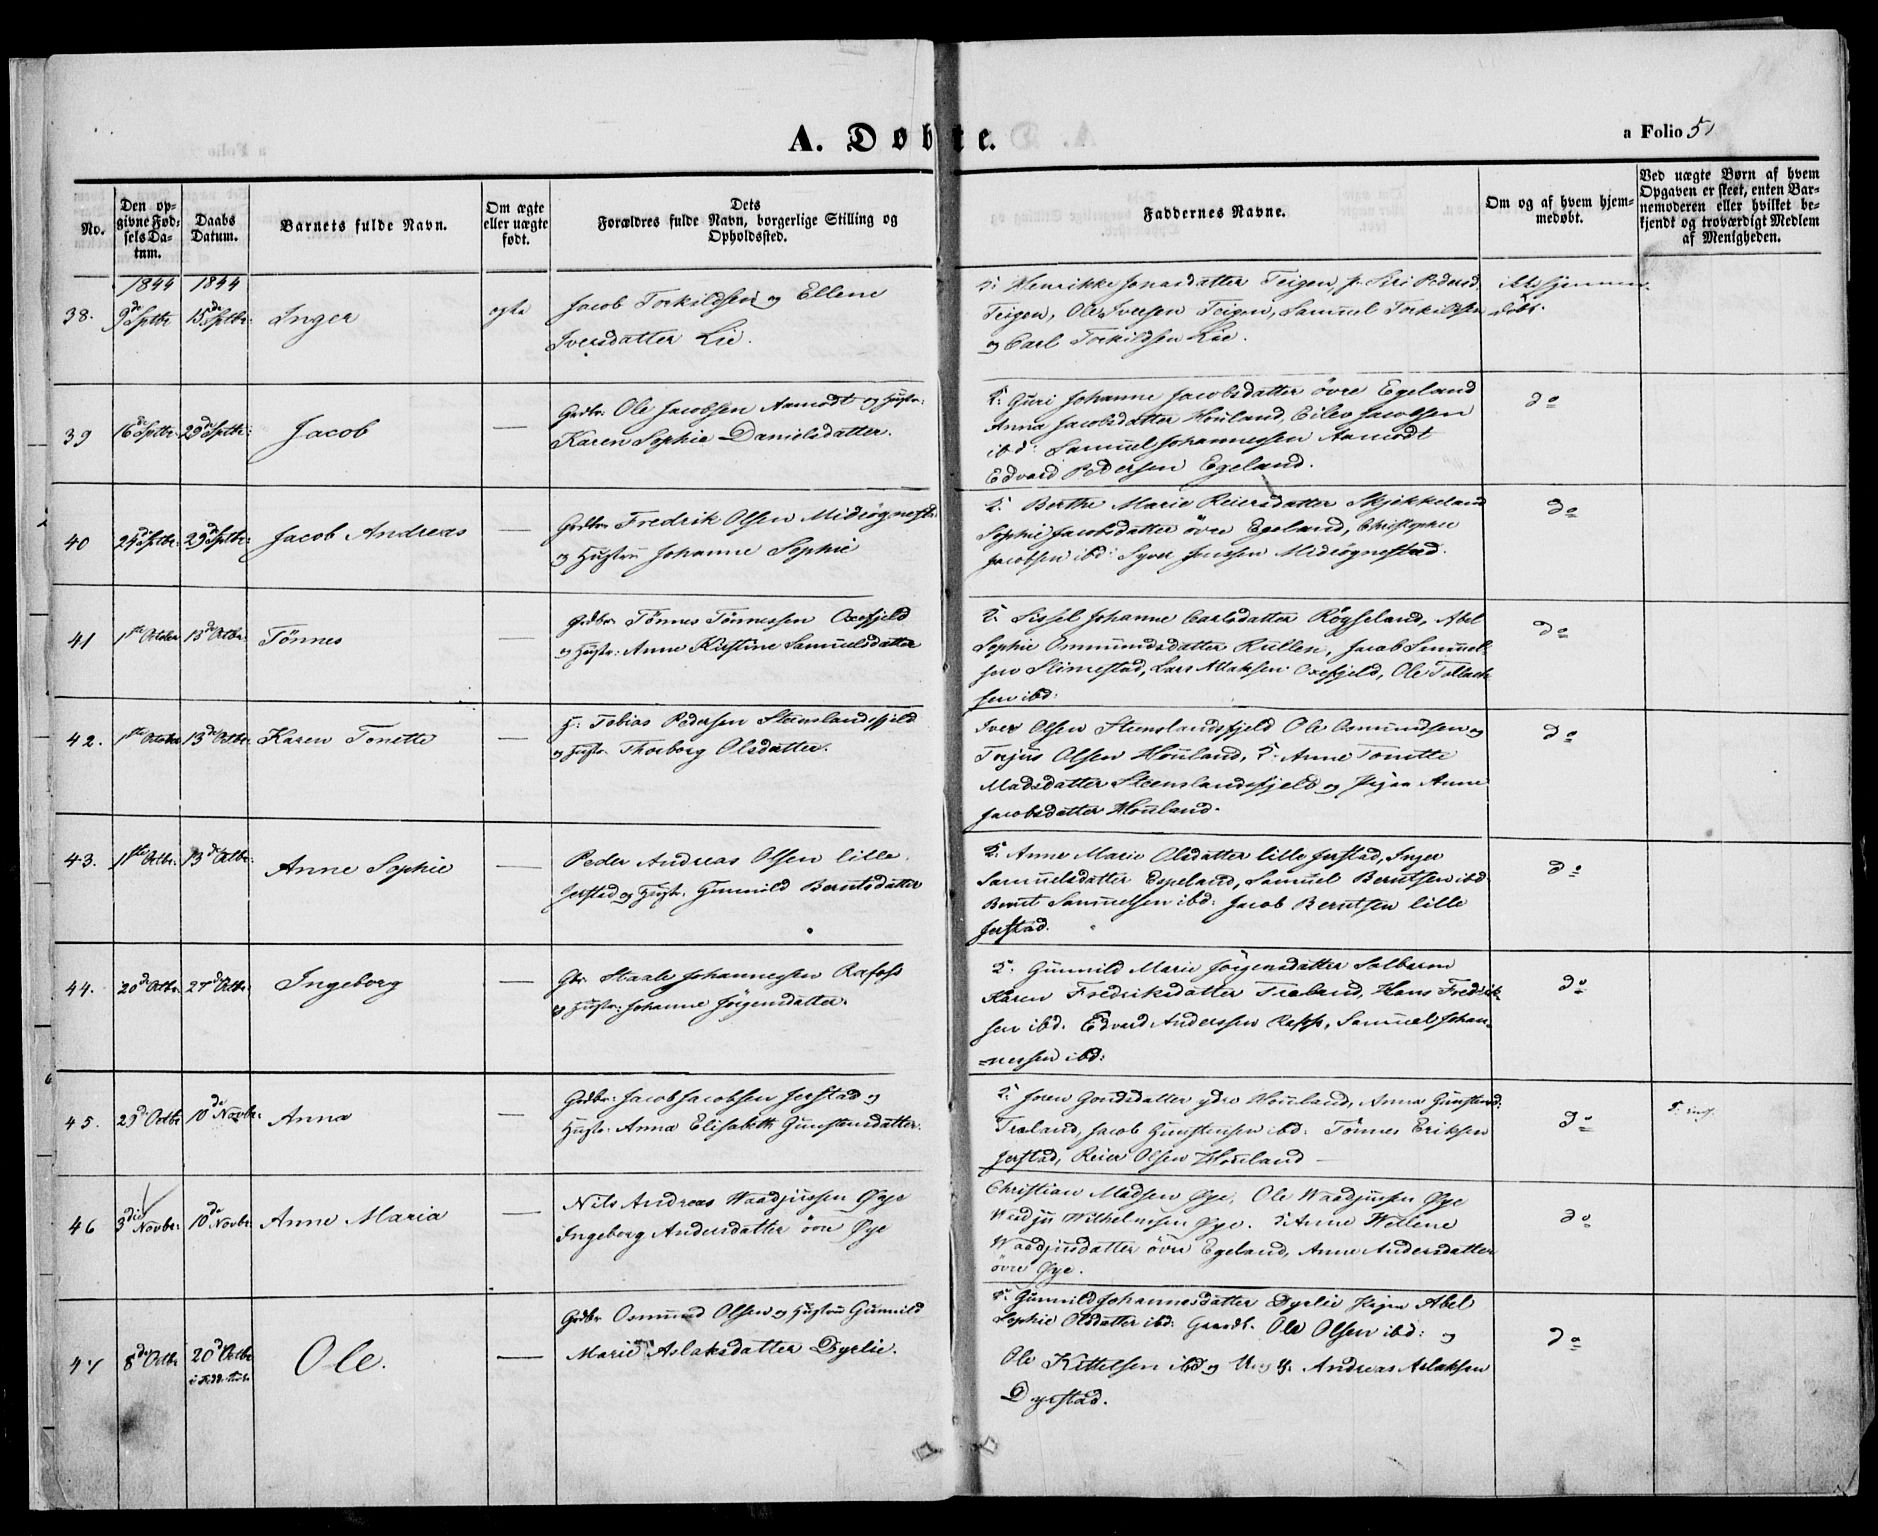 A. Døbte.
a Folio 51
No.
Den op-
givne Fød-
sels Da-
tum.
Daabs
Datum.
Barnets fulde Navn.
Om ægte
eller uægte
født.
Dets
Forældres fulde Navn, borgerlige Stilling og
Opholdssted.
Faddernes Navne.
Om og af hvem hjem-
medøbt.
Ved uægte Børn af hvem
Opgaven er skeet, enten Bar-
nemoderen eller hvilket be-
kjendt og troværdigt Medlem
af Menigheden.
1844 1844
38. 9de Sptbr. 15de Sptbr: Inger ægte
Jacob Torkildsen og Ellene
Iversdatter Lie.
Henrikke Jonasdatter Teigen, Siri Pedersd
Teigen, Ole Iversen Teigen, Samuel Torkildsen
og Carl Torkildsen Lie.
ikke hjemme-
døbt.
39 16de Sptbr. 29de Sptbr: Jacob —
Grdbr: Ole Jacobsen Aamodt og Hustr:
Karen Sophie Danielsdatter.
Guri Johanne Jacobsdatter övre Egeland
Anna Jacobsdatter Houland, Eilev Jacobsen
ibd: Samuel Johannessen Aamodt
Edvard Pedersen Egeland.
do
40 24de Sptbr: 29de Sptbr: Jacob Andreas —
Grdbr: Fredrik Olsen Midrögnestd:
og Hustr: Johanne Sophie
Berthe Marie Reiersdatter Skjekkeland
Sophie Jacobsdatter övre Egeland, Christopher
Jacobsen ibd: Syver Jensen Midrögnestad.
do
41 1ste October 13de Octbr: Tönnes —
Grdbr: Tönnes Tönnessen Oxefjeld
og Hustr: Anne Kirstine Samuelsdatter
Sissel Johanne Carlsdatter Rögseland, Abel
Sophie Ommundsdatter Kullen, Jacob Samuel-
sen Stimestad, Lars Atlaksen Oxefjeld, Ole Tallach
sen ibd:
do
42. 1ste October 13de Octbr. Karen Tonette —
H: Tobias Pedersen Steenslandsfjeld
og Hustr: Thorborg Olsdatter.
Iver Olsen Steenslandsfjeld Ole Osmundsen og
Terjus Olsen Houland, Anne Tonette
Madsdatter Steenslandsfjeld og Pigen Anne
Jacobsdatter Houland.
do
43. 1ste Octbr: 13de Octbr: Anne Sophie —
Peder Andreas Olsen lille
Jerstad og Hustr. Gunnild Berntsdatter
Anne Marie Olsdatter lille Jerstad, Inger
Samuelsdatter Espeland, Samuel Berntsen ibd.
Bernt Samuelsen ibd: Jacob Berntsen lille
Jerstad.
do
44. 20de Octbr. 27de Octbr: Ingeborg —
Gbr. Staale Johannessen Rafoss
og Hustr: Johanne Jörgensdatter.
Gunnild Marie Jörgensdatter Solbarm
Karen Fredriksdatter Traland, Hans Fredrik-
sen ibd. Edvard Anderssen Rapss, Samuel Johan-
nessen ibd:
do
45. 29de Octbr 10de Novbr: Anna —
Grdbr: Jacob Jacobsen Jerstad og
Hustr: Anna Elisabeth Gunstensdatter.
Joren Gondsdatter ydre Houland, Anna Gunstensd:
Traland, Jacob Gunstensen ibd: Tönnes Eriksen
Jerstad, Reier Olsen Houland —
do
46 3die Novbr: 10de Novbr: Anne Maria —
Nils Andreas Waadjussen Øye
Ingeborg Andersdatter övre Øye
Christian Madsen Øye, Ole Waadjussen Øye
Waadju Wilhelmsen Øye. Anne Wellene
Waadjusdatter övre Egeland, Anne Andersdatter
övre Øye.
do
47 8de Octbr 20de Octbr Ole. —
Grdbr Osmund Olsen og Hustru Gunnild
Marie Aslaksdatter Dyrlie.
Gunnild Johannesdatter Dyrlie Pigen Abel
Sophie Olsdatter ibd: Gaardb. Ole Olsen ibd: og
Ole Kittelsen ibd og Andreas Aslaksen
Dyrstad.
do